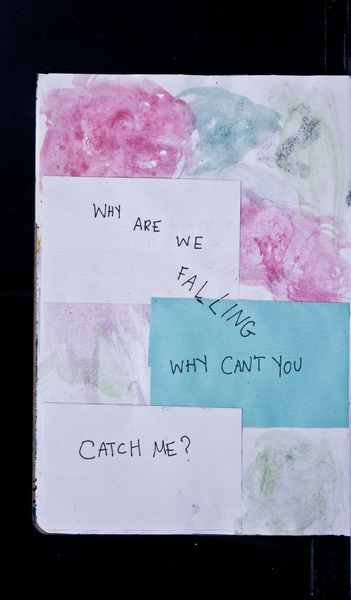 WHY ARE WE
FALLING
WHY CAN'T YOU
CATCH ME?